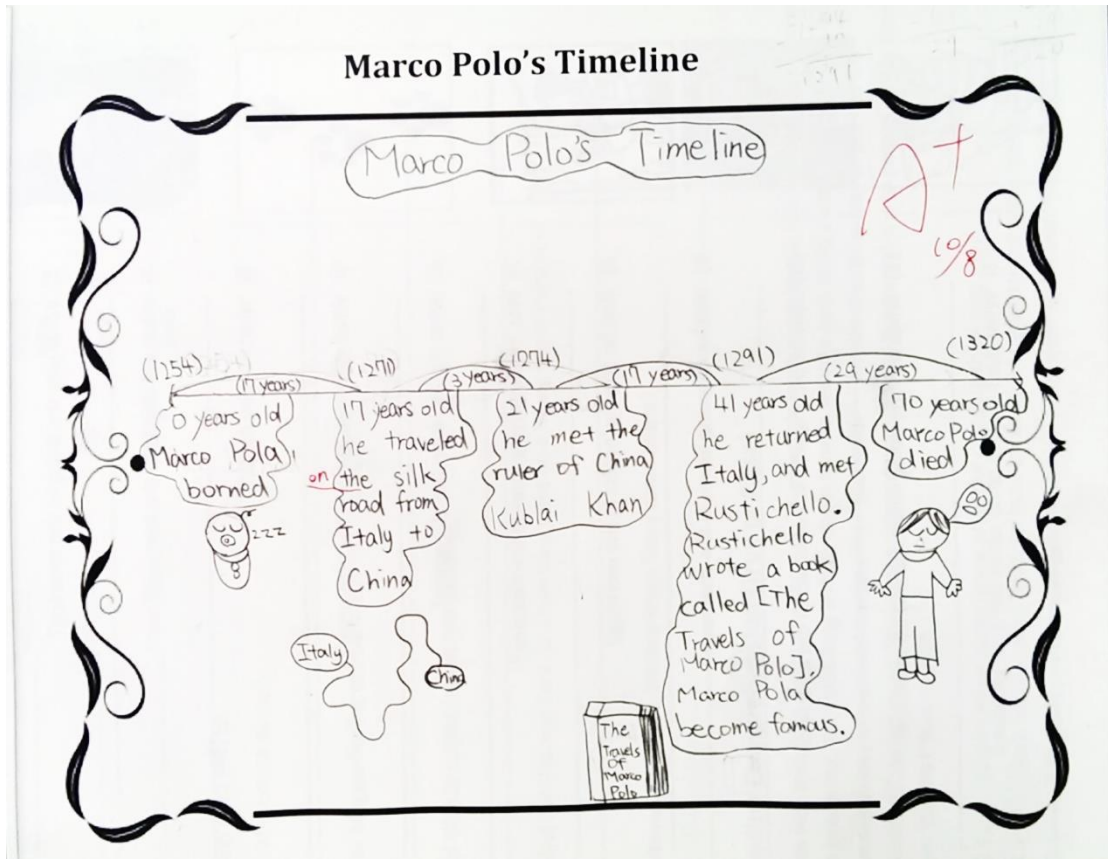 Marco Polo's Timeline
Marco Polo's Timeline
A+
10/8
(1254)
(1270)
(1274)
(1291)
(1320)
(17 years)
(3 years)
(17 years)
(29 years)
0 years old
Marco Pola
borned
zzz
17 years old
he traveled
on the silk
road from
Italy to
China
Italy
China
21 years old
he met the
ruler of China
Kublai Khan
41 years old
he returned
Italy, and met
Rustichello.
Rustichello
wrote a book
called [The
Travels of
Marco Polo],
Marco Pola
become famous.
The
Travels
Of
Marco
Polo
70 years old
Marco Polo
died